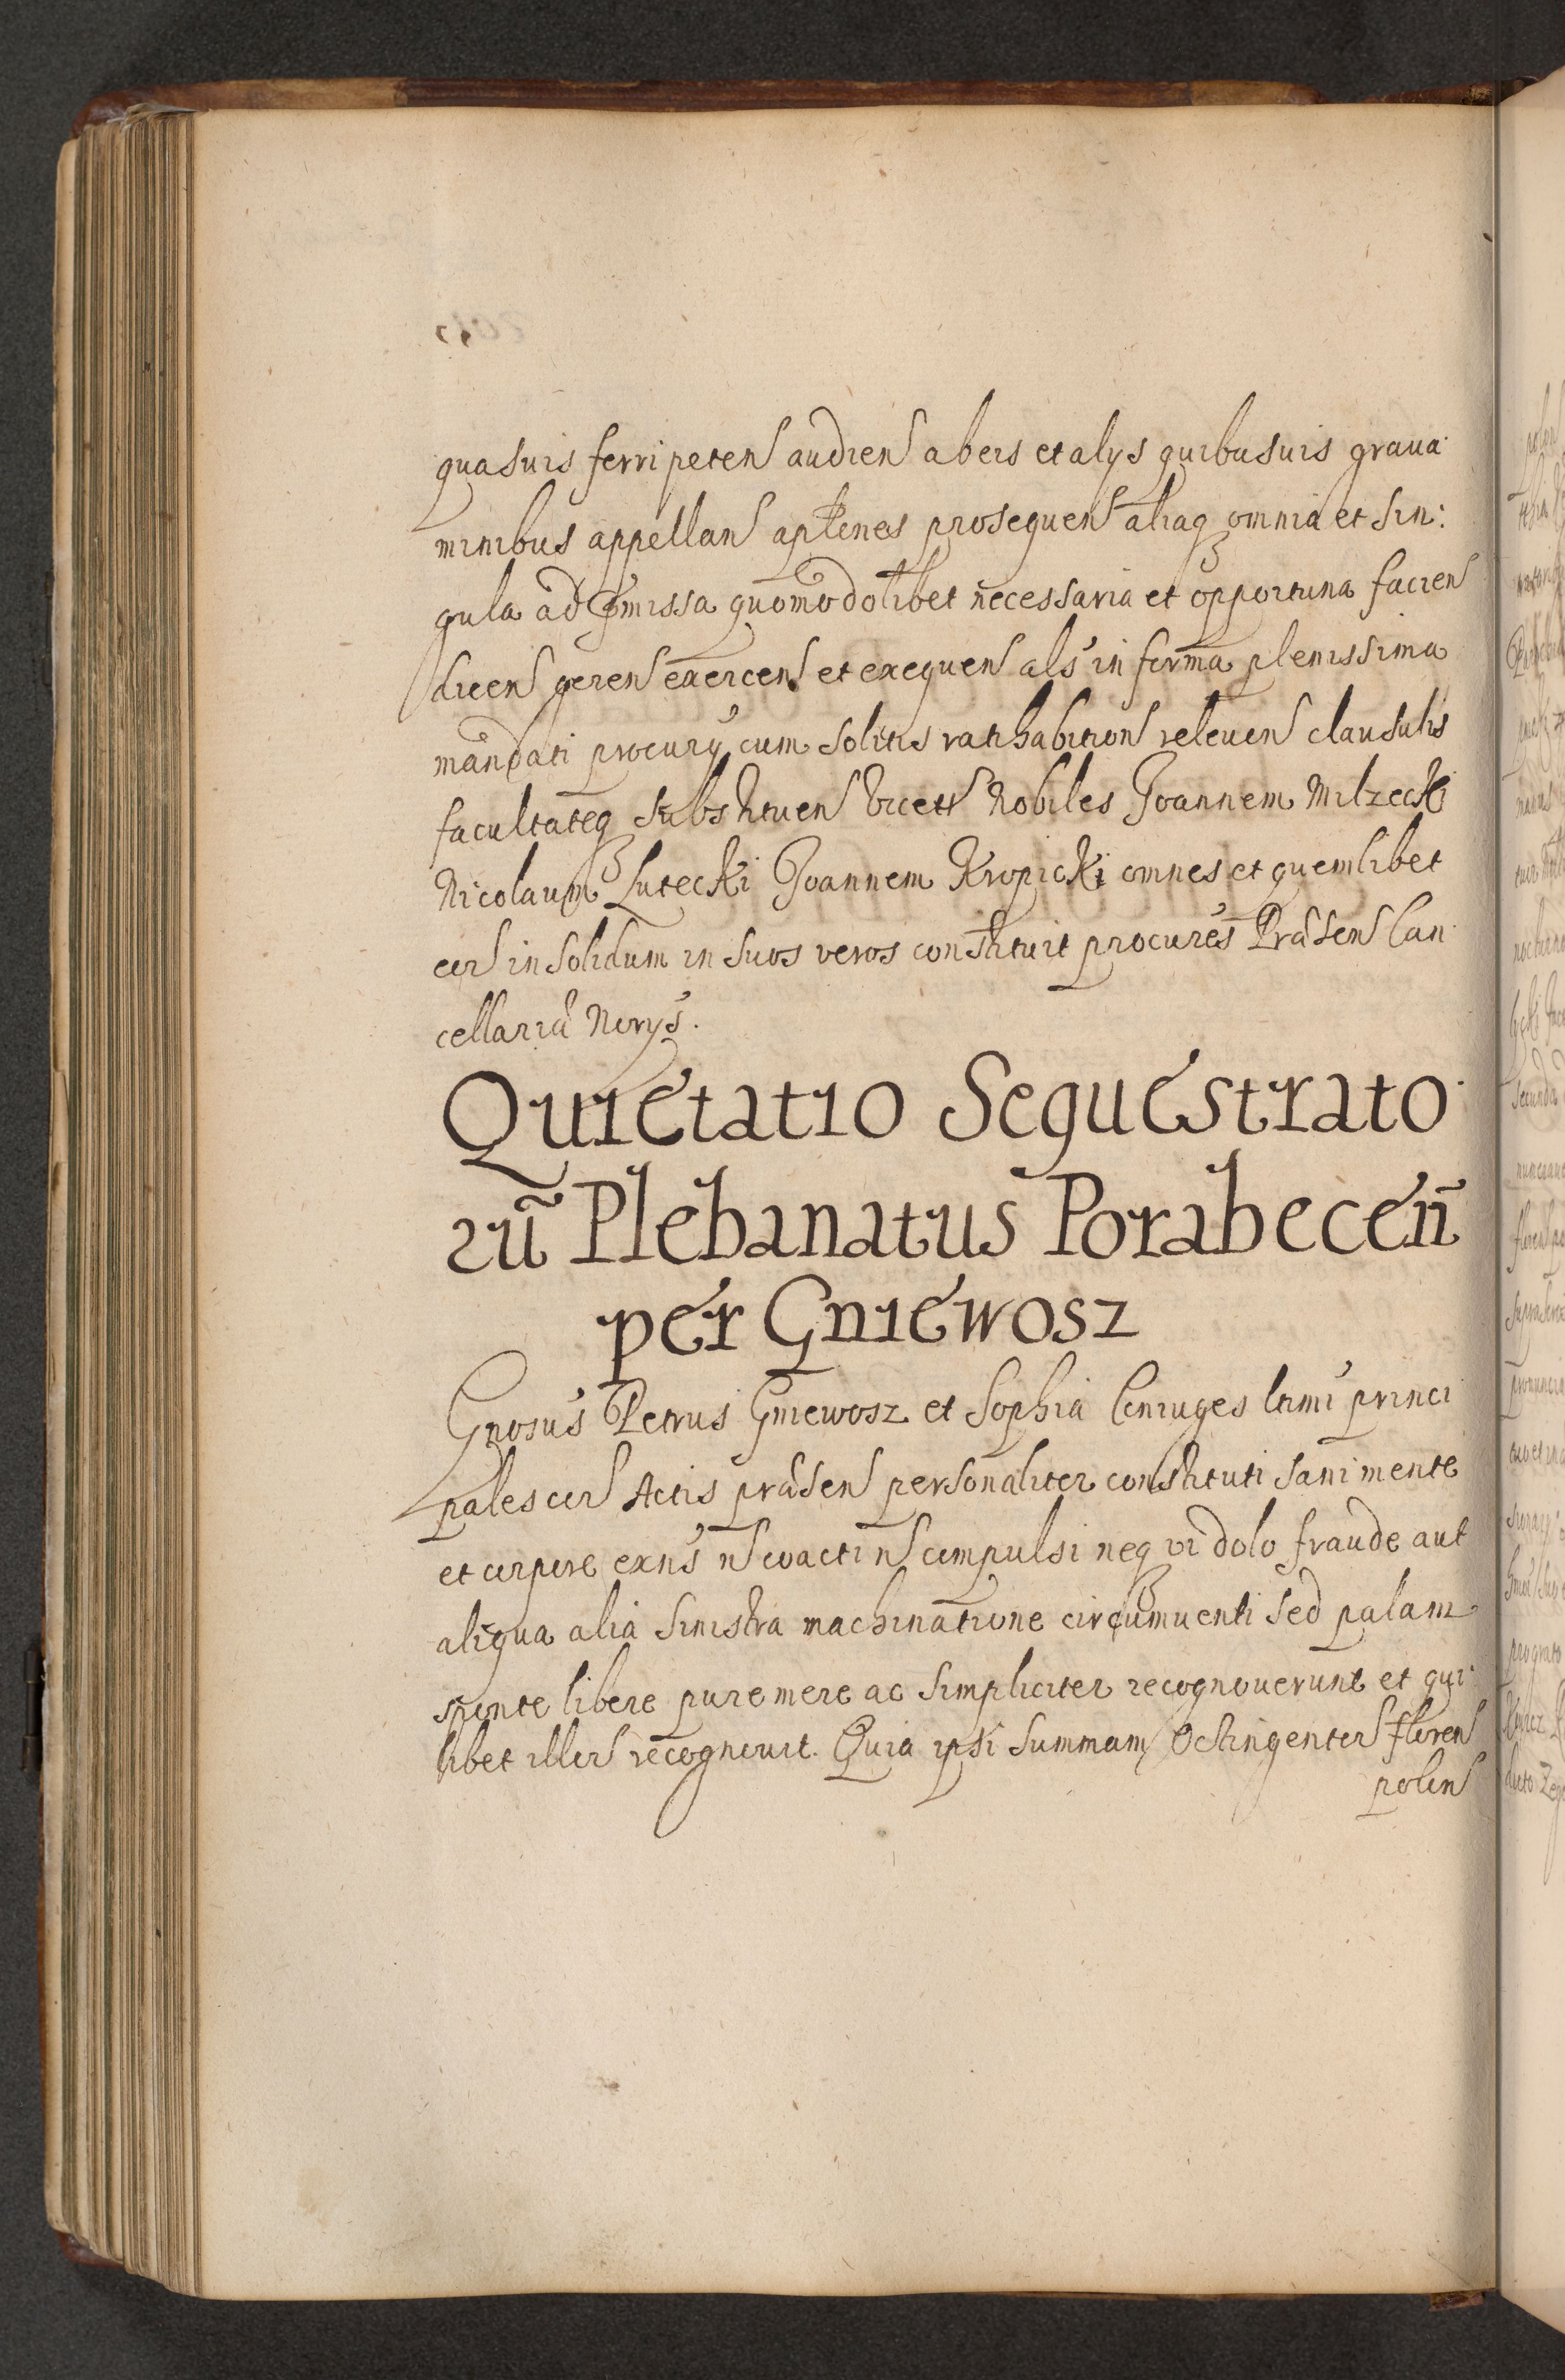 quasuis ferri peten audien ab eis et alys quibusuis graua
minibus appellan aplenes prosequen aliaq omnia et sin:
gula ad pmissa quomodolibet necessaria et opportuna facien
dicen geren exercen et exequen als in forma plenissima
mandati procury cum solitis ratihabition releuen clausulis
facultateq substituen vicett Nobiles Joannem Milzecki
Nicolaum Lutecki Joannem Kropicki omnes et quemlibet
eor in solidum in suos veros constituit procures Præsen Can
cellaria Norys.
Quietatio Sequestrato
rũ Plebanatus Porabeceñ
per Gniewosz
Gnosus Petrus Gniewosz et Sophia Coniuges ltimi princi
pales cor Actis præsen personaliter constituti sani mente
et corpore exns n coacti n compulsi neq vi dolo fraude aut
aliqua alia sinistra machinatione circumuenti sed palam
sponte libere pure mere ac simpliciter recognouerunt et qui
libet illor recognouit. Quia ipsi summam Octingentor floren
polon